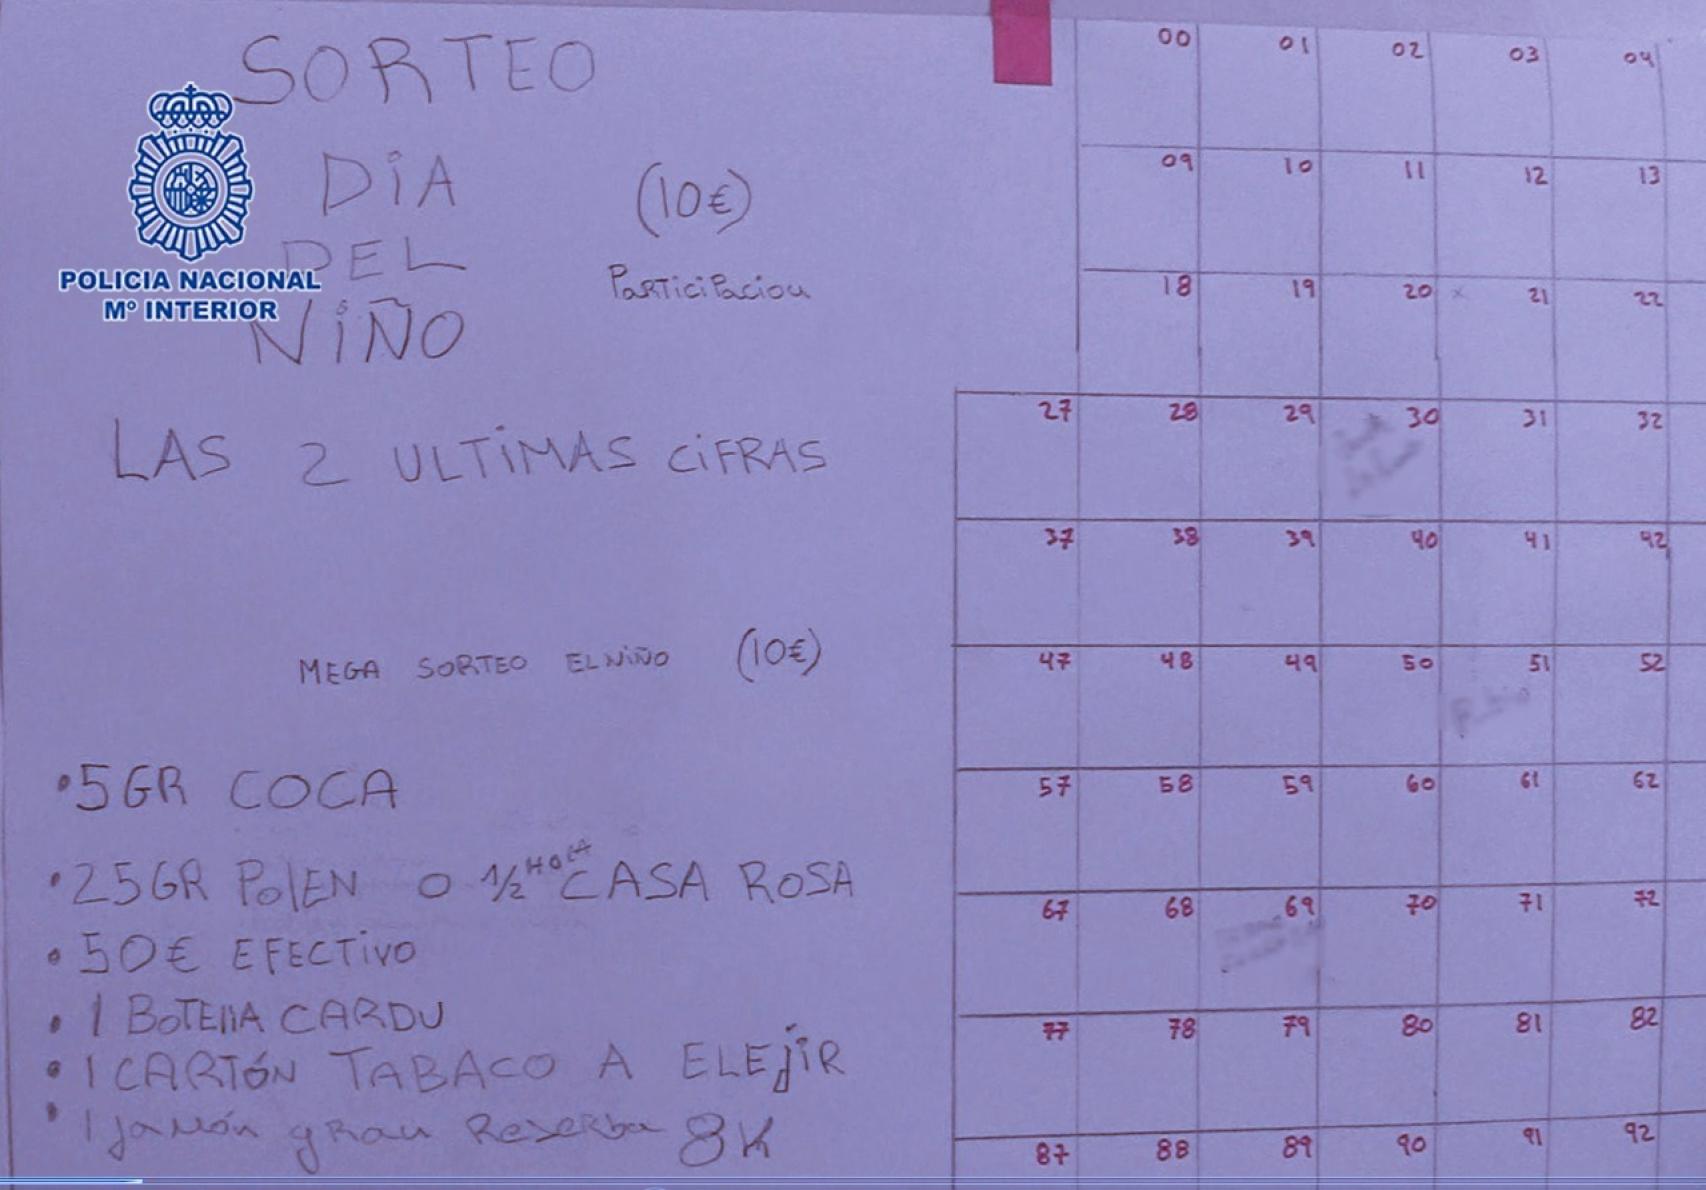 SORTEO
DiA
DEL
NiÑO
(10€)
PaRTiciPacion
POLICIA NACIONAL
Mº INTERIOR
LAS 2 ULTiMAS CiFRAS
MEGA SORTEO EL NiÑO (10€)
•5GR COCA
•25GR PolEN o 1/2 CASA ROSA
• 50€ EFECTivo
• 1 BoTEllA CARDU
• 1 CARTÓN TABACO A ELEjiR
• 1 jamón gRan ReseRba 8K
00 01 02 03 04
09 10 11 12 13
18 19 20 x 21 22
27 28 29 30 31 32
37 38 39 40 41 42
47 48 49 50 51 52
57 58 59 60 61 62
67 68 69 70 71 72
77 78 79 80 81 82
87 88 89 90 91 92